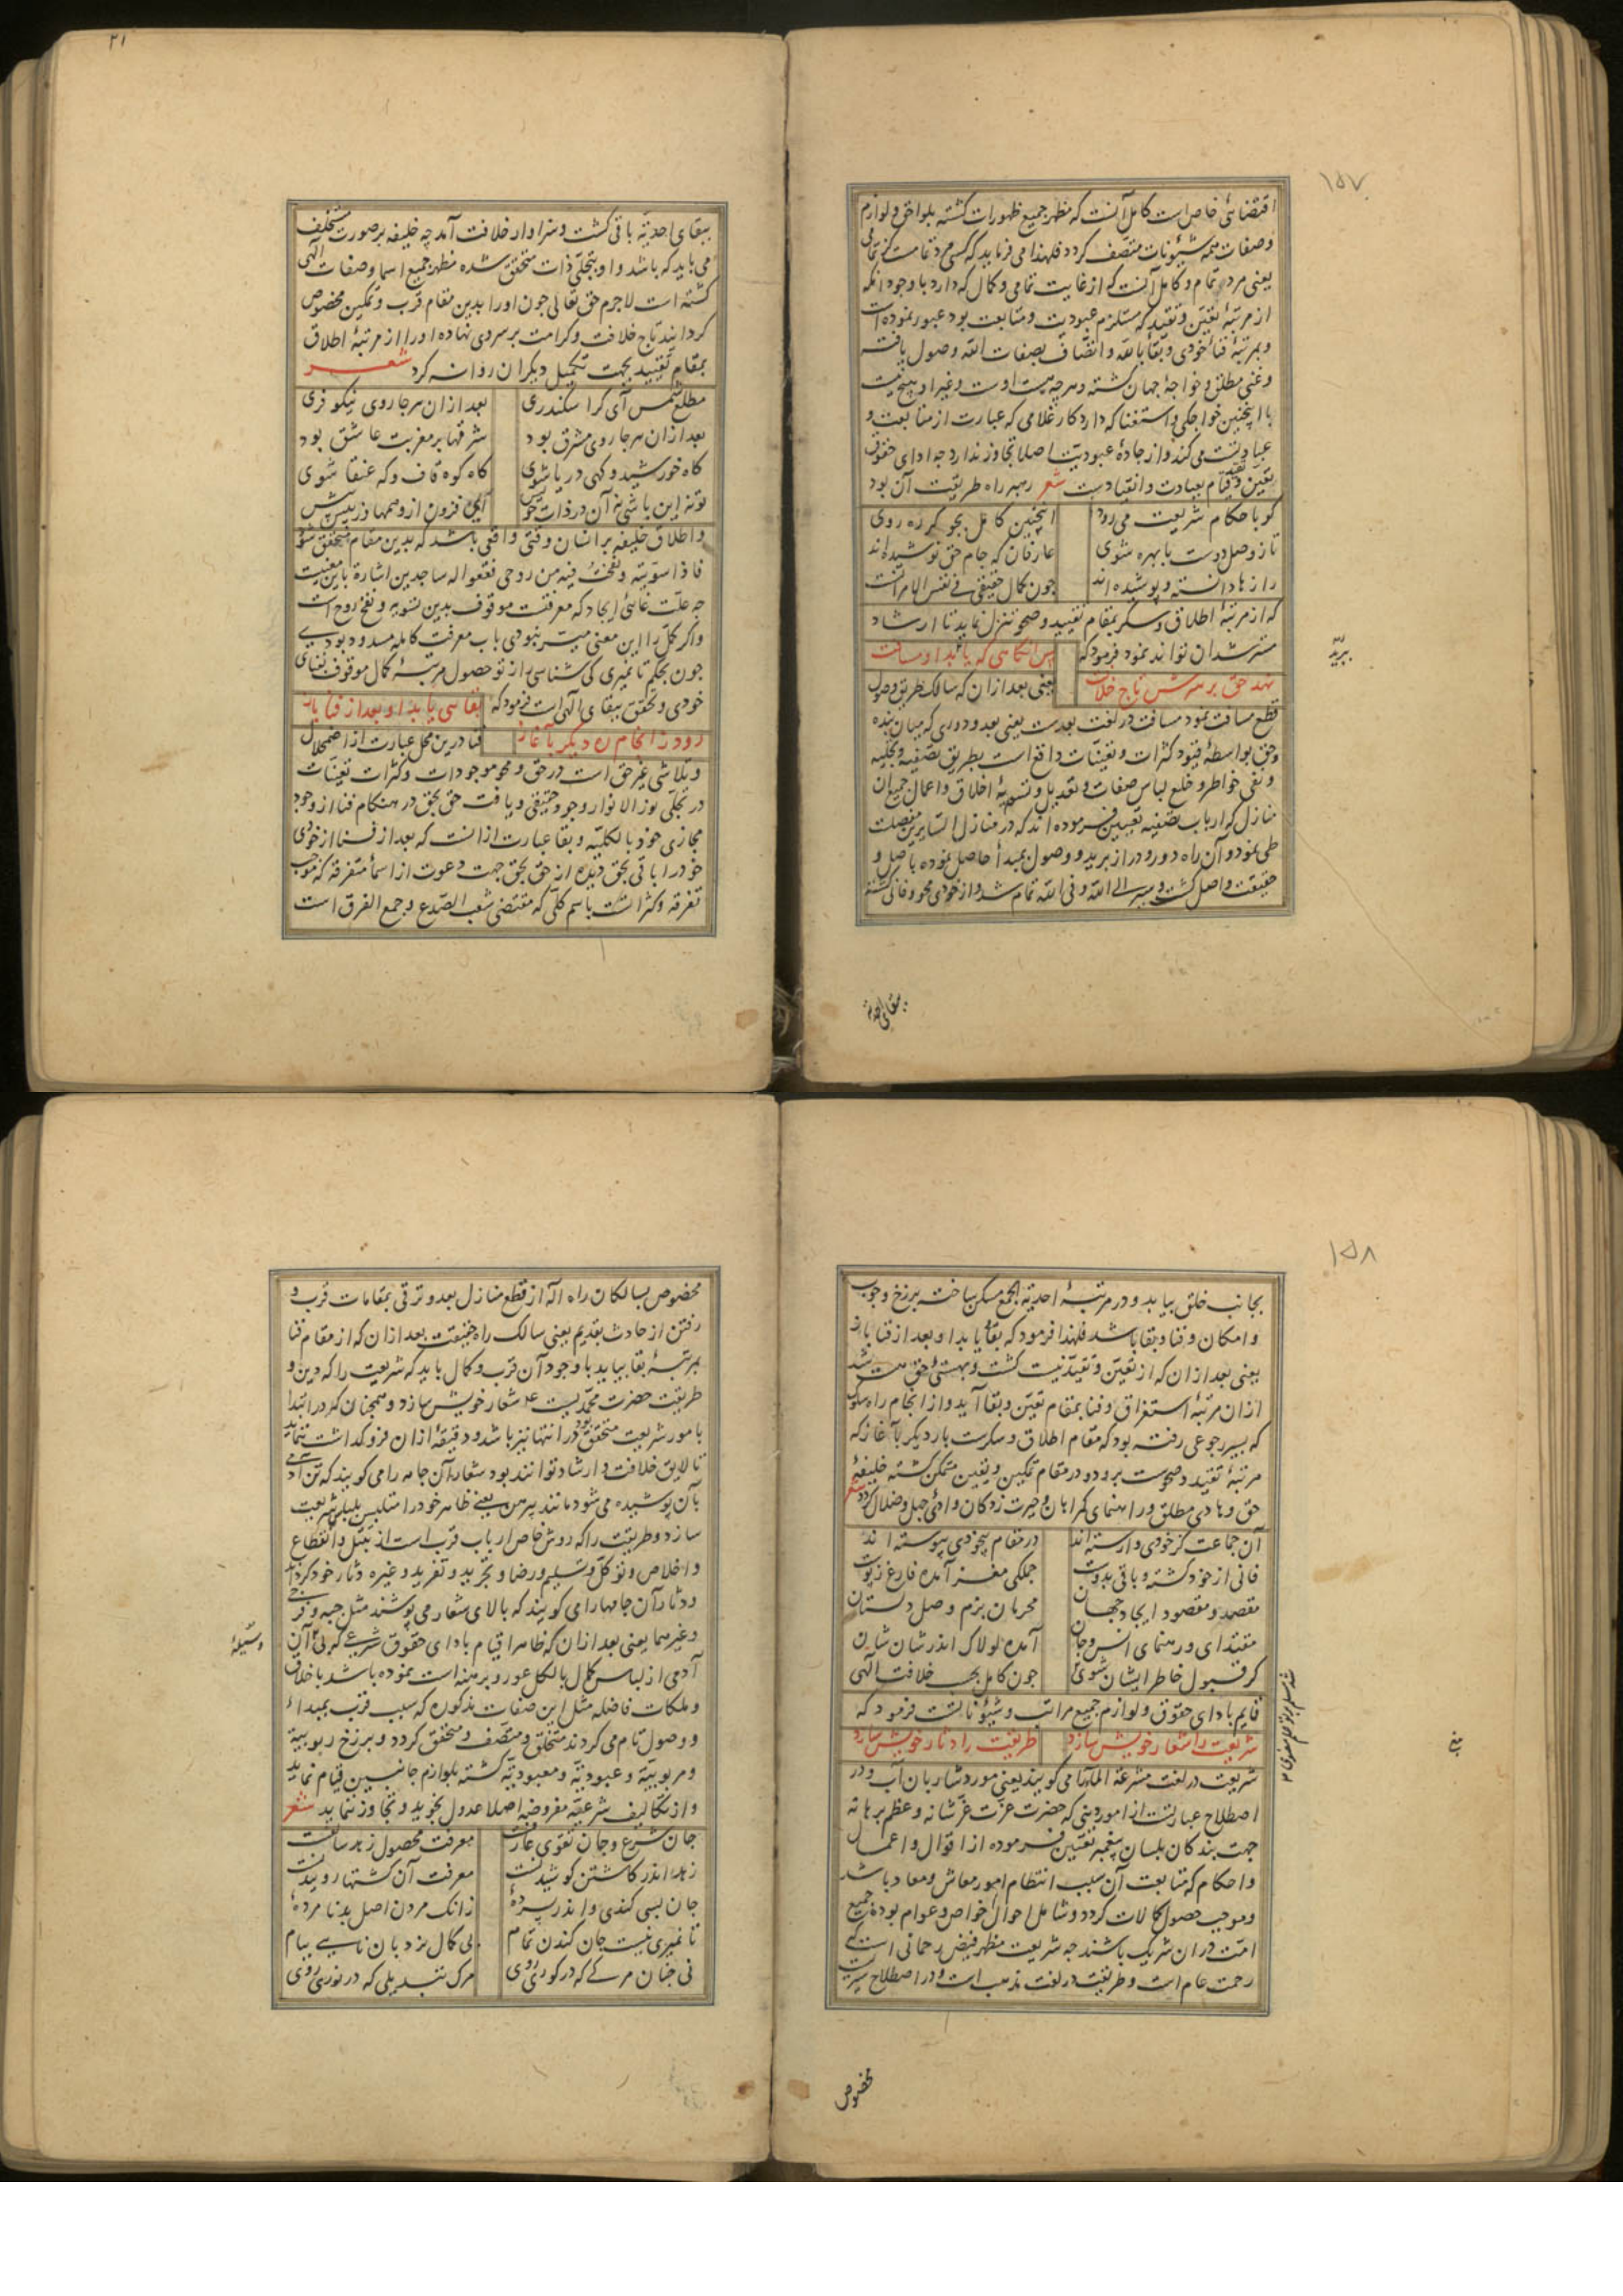 ۱۵۷
اقتضائی خاص است کامل آنست که مظهر جمیع ظهورات کشته بلواحق و لوازم
وصفات همه شیونات متصف کردد فلهذا می فرماید که کسی مرد تمامست کز تمامی
یعنی مرد تمام و کامل آنست که از غایت تمامی و کمال که دارد با وجود آنکه
از مرتبهٔ تعین و تقید که مستلزم عبودیت و متابعت بود عبور نموده است
و بمرتبهٔ فناء خودی و بقاء بالله و اتصاف بصفات الله وصول یافته
و غنی مطلق و خواجهٔ جهان کشته و هرچه هست اوست و غیر او هیچ نیست
با اینچنین خواجکی و استغنا که دارد کار غلامی که عبارت از متابعت و
عبادتست می کند و از جادهٔ عبودیت اصلا تجاوز ندارد جه ادای حقوق
تعین و تقید قیام بعبادت و انقیادست شعر رهبر راه طریقت آن بود
کو باحکام شریعت می رود اینچنین کامل بجو کر ره روی
تا ز وصل دوست با بهره شوی عارفان که جام حق نوشیده اند
رازها دانسته و پوشیده اند جون کمال حقیقی فی نفس الامر آنست
که از مرتبهٔ اطلاق و سکر بمقام تقیید و صحو تنزل نماید تا ارشاد
مسترشدان تواند نمود فرمود که پس انکاهی که ببرید او مسافت
نهد حق بر سرش تاج خلافت یعنی بعد از ان که سالک طریق وصول
قطع مسافت نمود مسافت در لغت بعدست یعنی بعد و دوری که میان بنده
وحق بواسطهٔ قیود کثرات و تعینات واقع است بطریق تصفیه و تجلیه
و نفی خواطر و خلع لباس صفات و تعدیل و تسویهٔ اخلاق و اعمال جمیع آن
منازل که ارباب تصفیه تعیین فرموده اند که در منازل السایرین مفصلست
طی نمود و آن راه دور و دراز برید و وصول بمبدأ حاصل نموده باصل و
حقیقت واصل کشت و سیر الی الله و فی الله تمام شد و از خودی محو و فانی کشته
ببرید
ببقای احدیة
۲۱
ببقای احدیّة باقی کشت و سزاوار خلافت آمد چه خلیفه بر صورت مستخلف
می باید که باشد و او بتجلی ذات متحقق شده مظهر جمیع اسما و صفات الهی
کشته است لاجرم حق تعالی جون اورا بدین مقام قرب و تمکین مخصوص
کردانید تاج خلافت و کرامت بر سر وی نهاده اورا از مرتبهٔ اطلاق
بمقام تقیید بجهت تکمیل دیکران روانه کرد شعر
مطلع شمس آی کر اسکندری بعد از ان هرجا روی نیکو فری
بعد از ان هرجا روی مشرق بود شرقها بر مغربت عاشق بود
کاه خورشید و کهی دریا شوی کاه کوه قاف و که عنقا شوی
تو نه این باشی نه آن در ذات خویش ای فزون از وهمها وز بیش بیش
و اطلاق خلیفه بر انسان وقتی واقعی باشد که بدین مقام متحقق شود
فاذا سویته و نفخت فیه من روحی فقعوا له ساجدین اشارة باین معنیست
جه علت غائی ایجاد که معرفتست موقوف بدین تسویه و نفخ روح است
و اکر کمل را این معنی میسر نبودی باب معرفت کامله مسدود بودی
جون بحکم تا نمیری کی شناسی راز تو حصول مرتبهٔ کمال موقوف فنای
خودی و تحقق ببقای الهی است فرمود که بقائی یابد او بعد از فنا باز
رود ز انجام ره دیکر باغاز فنا درین محل عبارت از اضمحلال
و تلاشی غیر حق است در حق و محو موجودات و کثرات تعینات
در تجلّی نور الانوار وجود حقیقی و یافت حق بحق در هنکام فنا از وجود
مجازی خود بالکلیه و بقا عبارت از انست که بعد از فنا از خودی
خود را باقی بحق دیده از حق بحق جهت دعوت از اسماء متفرقه که موجب
تفرقه و کثرانست باسم کلّی که مقتضی شعب الصدع و جمع الفرق است
۱۵۸
بجانب خلق بیاید و در مرتبهٔ احدیة الجمع مسکن ساخته برزخ وجوب
و امکان و فنا و بقا باشد فلهذا فرمود که بقا یابد او بعد از فنا باز
یعنی بعد از ان که از تعین و تقید نیست کشت و بهستی حق هست شد
از ان مرتبهٔ استغراق و فنا بمقام تعین و بقا آید و از انجام راه سلوک
که بسیر رجوعی رفته بود که مقام اطلاق و سکرست بار دیکر باغاز که
مرتبهٔ تقید و صحوست برود و در مقام تمکین و تعین متمکن کشته خلیفهٔ
حق و هادی مطلق و راهنمای کمراهان و حیرت زدکان وادی جهل و ضلال کردد شعر
آن جماعت کز خودی وارسته اند در مقام بیخودی پیوسته اند
فانی از خود کشته و باقی بدوست جملکی مغز آمده فارغ ز پوست
مقصد و مقصود ایجاد جهان محرمان بزم وصل دلستان
مقتدای و رهنمای انس و جان آمده لولاک اندر شان شان
کر قبول خاطر ایشان شوی جون کامل بحسب خلافت الهی
قایم بادای حقوق و لوازم جمیع مراتب و شیوناتست فرمود که
شریعت را شعار خویش سازد طریقت را دثار خویش سازد
شریعت در لغت مشرعة الماء را می کویند یعنی مورد شاربان آب و در
اصطلاح عبارتست از امور دینی که حضرت عزت عزّ شانه و عظم برهانه
جهت بندکان بلسان پیغمبر تعیین فرموده از اقوال و اعمال
و احکام که متابعت آن سبب انتظام امور معاش و معاد باشد
و موجب حصول کمالات کردد و شامل احوال خواص و عوام بوده جمیع
امت در ان شریک باشند جه شریعت مظهر فیض رحمانی است که
رحمت عام است و طریقت در لغت مذهب است و در اصطلاح سیریست
مخصوص
مخصوص بسالکان راه اله از قطع منازل بعد و ترقی بمقامات قرب و
رفتن از حادث بقدیم یعنی سالک راه حقیقت بعد از ان که از مقام فنا
بمرتبهٔ بقا بیاید با وجود آن قرب و کمال باید که شریعت را که دین و
طریقت حضرت محمدیست ع شعار خویش سازد و همچنان که در ابتدا
بامور شریعت متحقق بود در انتها نیز باشد و دقیقهٔ از ان فروکذاشت ننماید
تا لایق خلافت و ارشاد تواند بود شعار آن جامه را می کویند که تن آدمی
بآن پوشیده می شود مانند پیرهن یعنی ظاهر خود را متلبس بلباس شریعت
سازد و طریقت را که روش خاص ارباب قرب است از تبتل و انقطاع
و اخلاص و توکل و تسلیم و رضا و تجرید و تفرید و غیره دثار خود کرداند
و دثار آن جامها را می کویند که بالای شعار می پوشند مثل جبه و فرجی
و غیرهما یعنی بعد از ان که ظاهرا قیام بادای حقوق شرعی که بی آن
آدمی از لباس کمال بالکل عور و برهنه است نموده باشد باخلاق
و ملکات فاضله مثل این صفات مذکوره که سبب قرب بمبداء
و وصول تام می کردند متخلق و متصف و متحقق کردد و برزخ ربوبیة
و مربوبیّة و عبودیة و معبودیة کشته بلوازم جانبین قیام نماید
و از تکالیف شرعیّه مفروضه اصلا عدول نجوید و تجاوز ننماید شعر
جان شرع و جان تقوی عارفست معرفت محصول زهد سالفست
زهد اندر کاشتن کوشیدنست معرفت آن کشتها روییدنست
جان بسی کندی و اندر پردهٔ زانک مردن اصل بد نامردهٔ
تا نمیری نیست جان کندن تمام بی کمال نردبان نایی ببام
نی جنان مرکی که در کوری روی مرک تبدیلی که در نوری روی